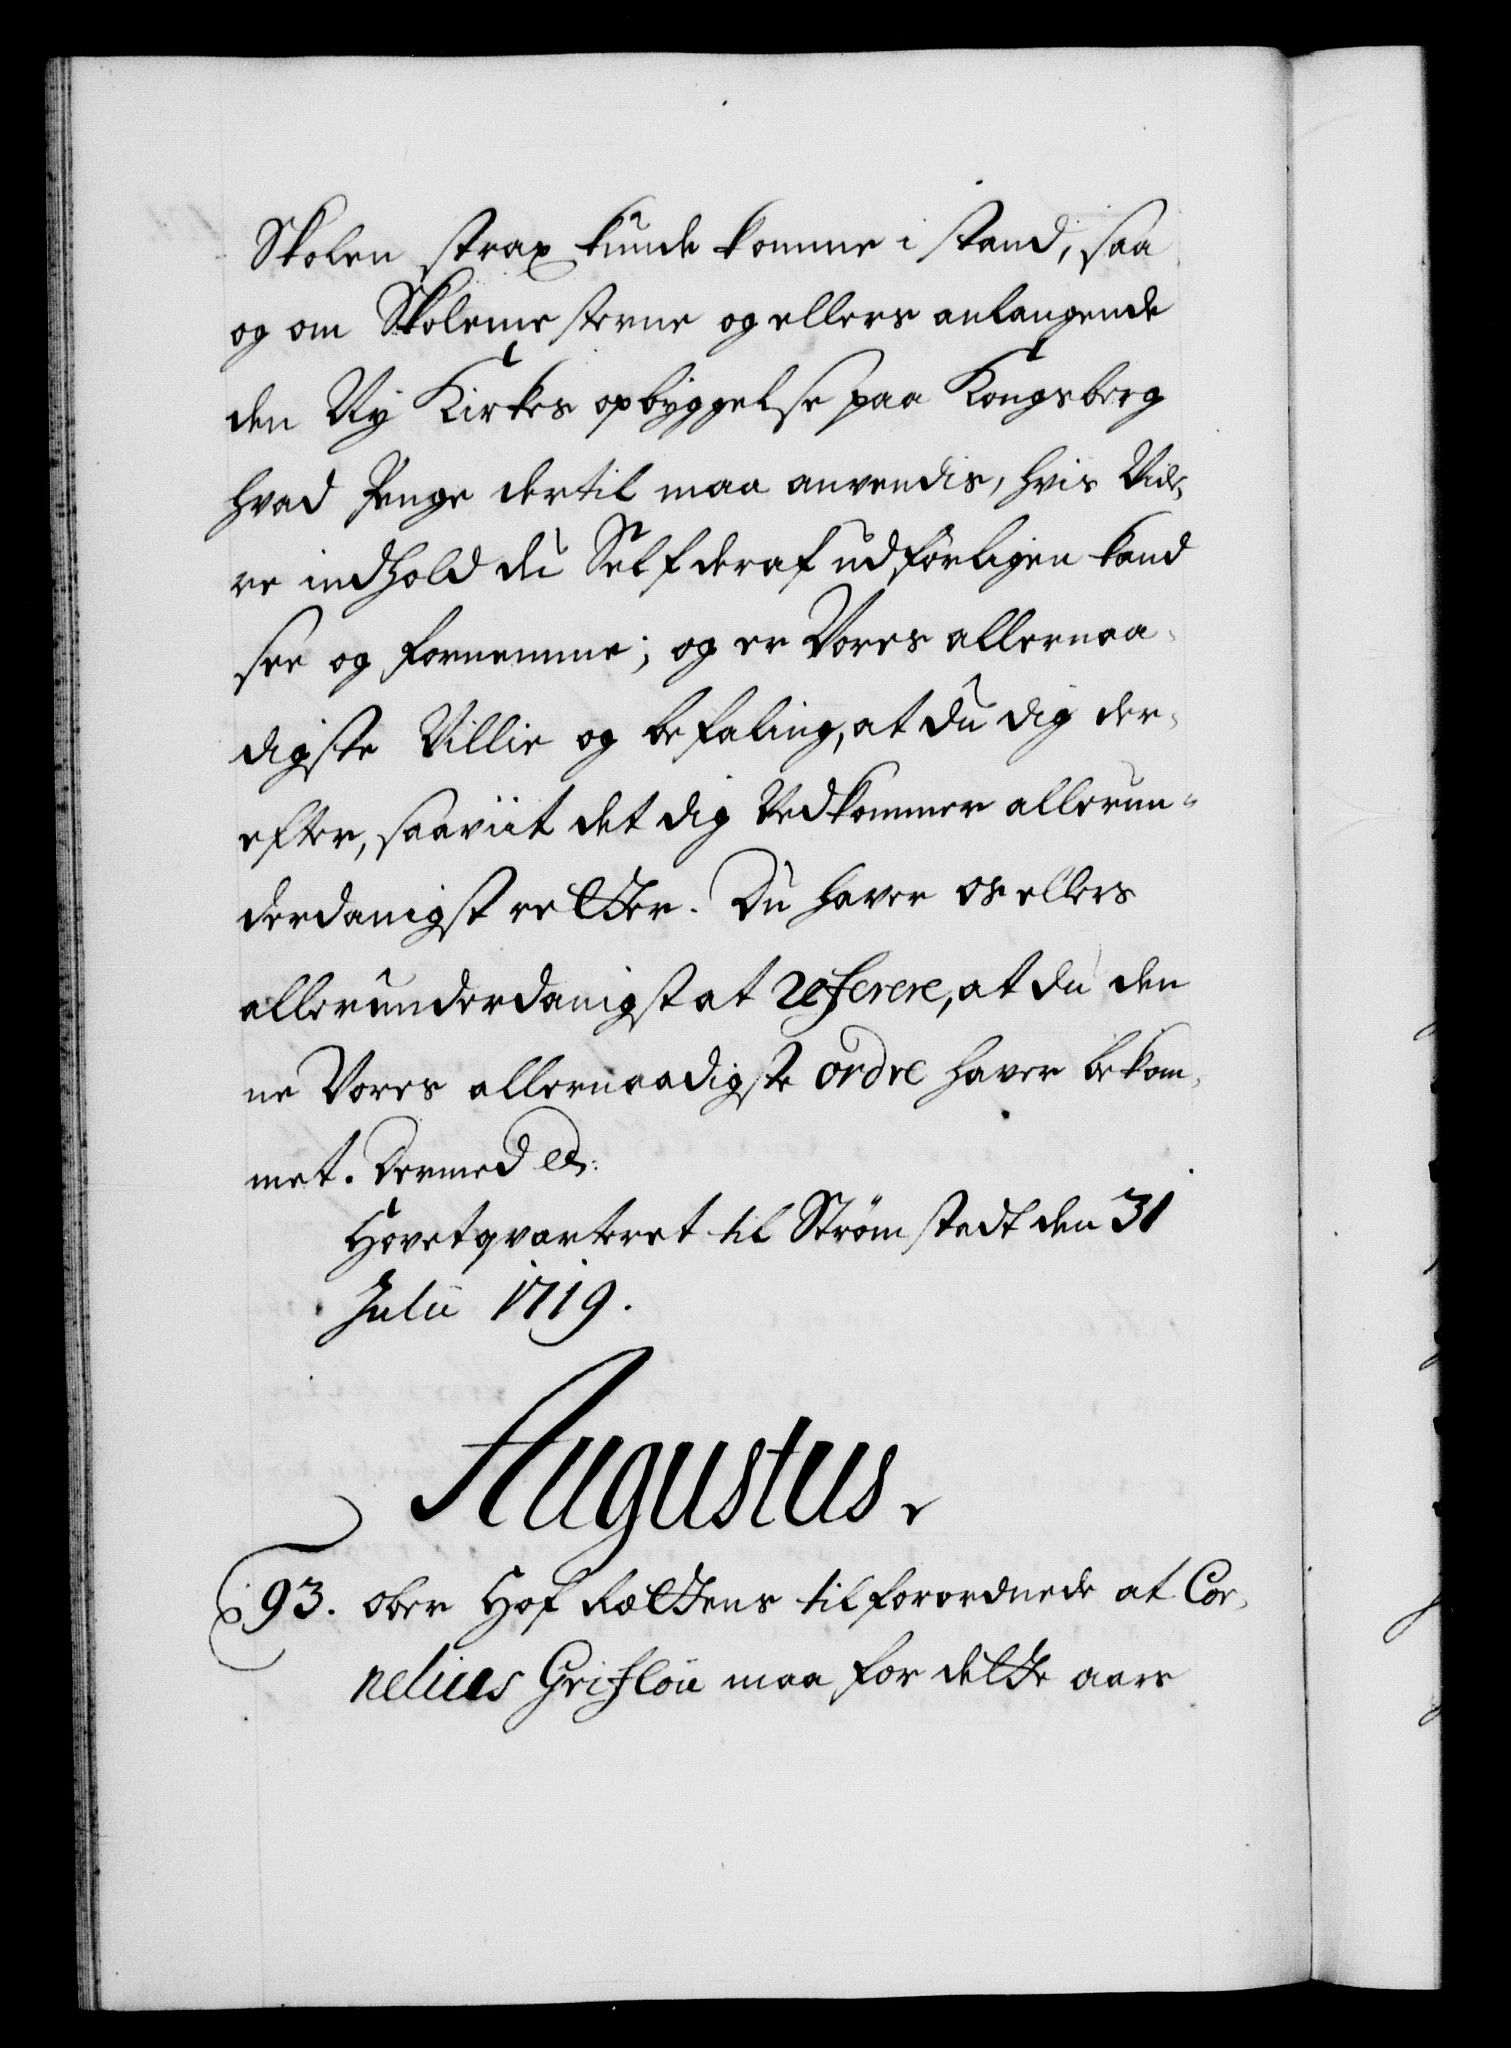 Skolen strax kunde komme i stand, saa
og om Skolemesterne og ellers anlangende
den Ny Kirkes opbyggelse paa Kongsberg
hvad Penge dertil maa anvendis, hvis Vide-
re indhold du Self deraf udførligen kand
see og fornemme; og er Vores allernaa-
digste Villie og befaling, at du dig der-
efter, saaviit det dig Vedkommer allerun-
derdanigst retter. Du haver os ellers
allerunderdanigst at referere, at du den
ne Vores allernaadigste ordre haver bekom-
met. Dermed etc:
Hovetqvarteret til Strømstedt den 31
Julii 1719.
Augustus.
93. Ober Hof Rættens tilforordnede at Cor-
nelius Griflou maa for dette aars